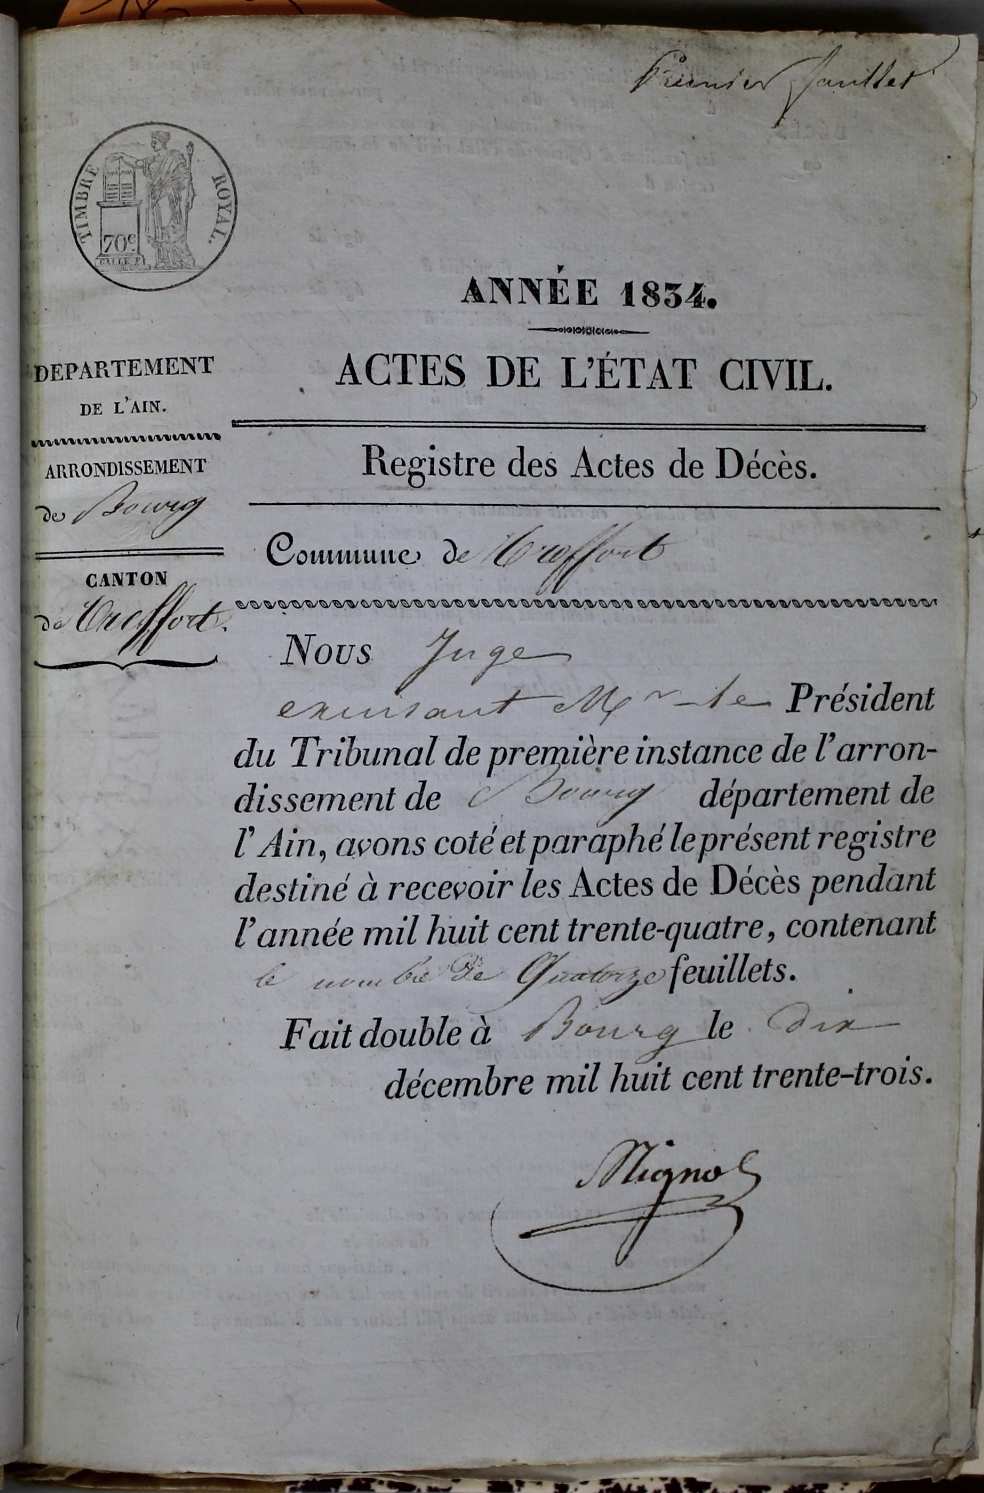 Premier feuillet
TIMBRE ROYAL.
70c
ANNÉE 1834.
ACTES DE L'ÉTAT CIVIL.
DEPARTEMENT
DE L'AIN.
ARRONDISSEMENT
de Bourg
CANTON
de Treffort.
Registre des Actes de Décès.
Commune de Treffort
Nous Juge
excusant Mr le Président
du Tribunal de première instance de l'arron-
dissement de Bourg département de
l'Ain, avons coté et paraphé le présent registre
destiné à recevoir les Actes de Décès pendant
l'année mil huit cent trente-quatre, contenant
le nombre de Quatorze feuillets.
Fait double à Bourg le dix
décembre mil huit cent trente-trois.